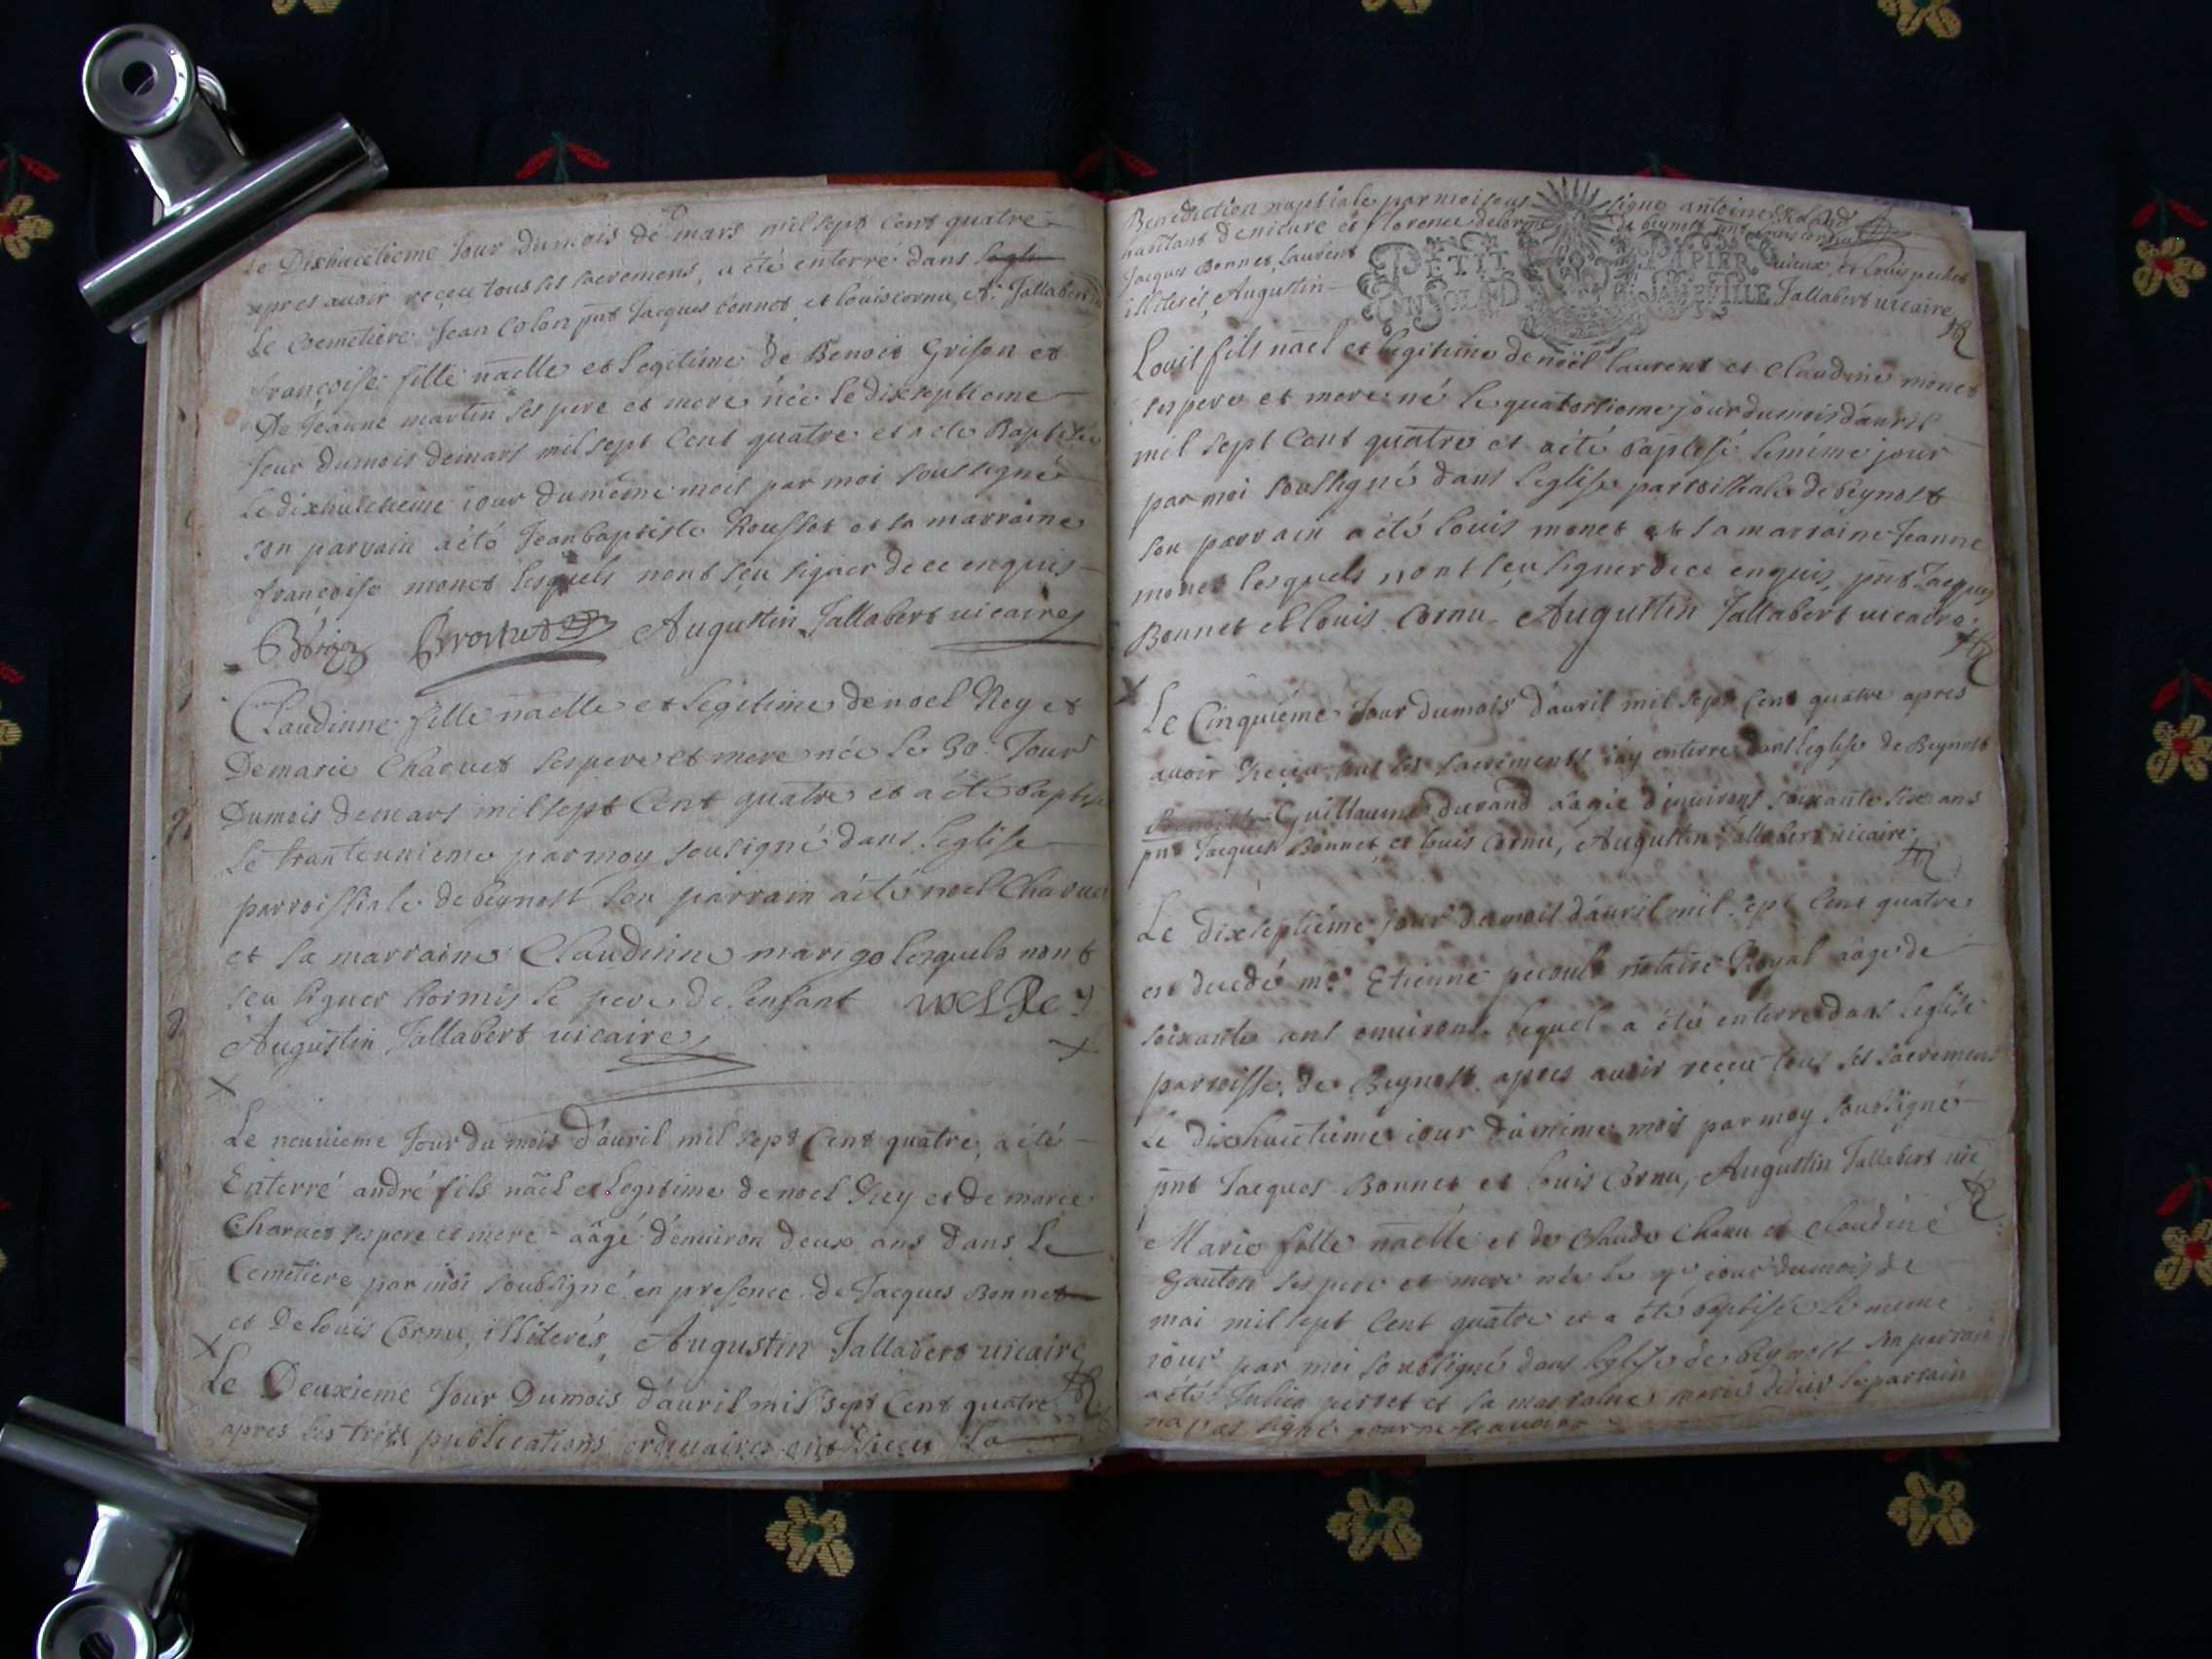 Le Dixhuictieme Jour Dumois de mars mil sept Cent quatre
apres avoir reçeu tous les sacremens, a été enterré dans
Le Cemetiere Jean Colon pnt Jacques bonnet et louis cornu, A. Jallabert
françoise fille naelle et Legitime de Benoit Grison et
De Jeanne martin ses pere et mere née le dixseptieme
Jour dumois demars mil sept Cent quatre et a ete Baptisée
Le dixhuictieme iour dumême mois par moi soussigné
son parrain a été Jean baptiste Rousset et la marraine
françoise monet lesquels nont sçu signer de ce enquis
Augustin Jallabert uicaire
Claudinne fille naelle et legitime denoel Rey et
Demarie Charuet ses pere et mere née le 30e Jour
Dumois demars mil sept Cent quatre et a été baptisé
le tranteunieme par moy sousigné dans leglise
parroissiale debeynost son parrain a été noel Charuet
et sa marraine Claudinne marigo lesquels nont
sçu signer hormis le pere de lenfant noel Rey
Augustin Jallabert uicaire
Le neuuieme Jour du mois d'auril mil sept Cent quatre, a été
Enterré andré fils nael et legitime denoel Rey et de marie
Charuet ses pere et mere aagé d'enuiron deux ans dans Le
Cemetiere par moi soubsigné en presence de Jacques Bonnet
et Delouis Cornu, illiterés, Augustin Jallabert uicaire
Le Deuxieme Jour Dumois d'auril mil sept Cent quatre
apres les trois publications ordinaires ont Reçeu La
Benediction nuptiale par moi sous signé antoine
habitant de nieure et florence delorme de beynost pnt
Jacques Bonnet, laurent uieux, et louis
illiterés, Augustin Jallabert uicaire
PETIT PAPIER
Louis fils nael et legitime de noël laurent et Claudine monet
ses pere et mere né le quatorsieme jour dumois dauril
mil sept Cent quatre et a été baptisé lemême jour
par moi soussigné dans leglise parroissiale de beynost
son parrain a été louis monet et sa marraine Jeanne
monet lesquels nont sçu signer de ce enquis, pnt Jacques
Bonnet et louis Cornu. Augustin Jallabert uicaire
Le Cinquiéme Jour dumois d'auril mil sept Cent quatre apres
auoir Reçeu tous les sacrements i'ay enterré dans leglise de Beynost
Guillaume durand aagé d'enuirons soixante six ans
pnt Jacques Bonnet et louis Cornu, Augustin Jallabert uicaire
Le Dixseptiéme jour dumois d'auril mil sept Cent quatre
est decedé me Etienne pecoult notaire Royal aagé de
soixante ans enuirons lequel a été enterré dans leglise
parroisse de Beynost apres auoir reçeu tous les sacremens
Le dixhuictieme iour dumême mois par moy soussigné
pnt Jacques Bonnet et louis Cornu, Augustin Jallabert uic
Marie fille naelle et de Claude et Claudine
Gauton ses pere et mere née le iour dumois de
mai mil sept Cent quatre et a été baptisée le meme
iour par moi soubsigné dans leglise de beynost son parrain
a été Julien et sa marraine marie le parrain
na pas signé pour ne scauoir